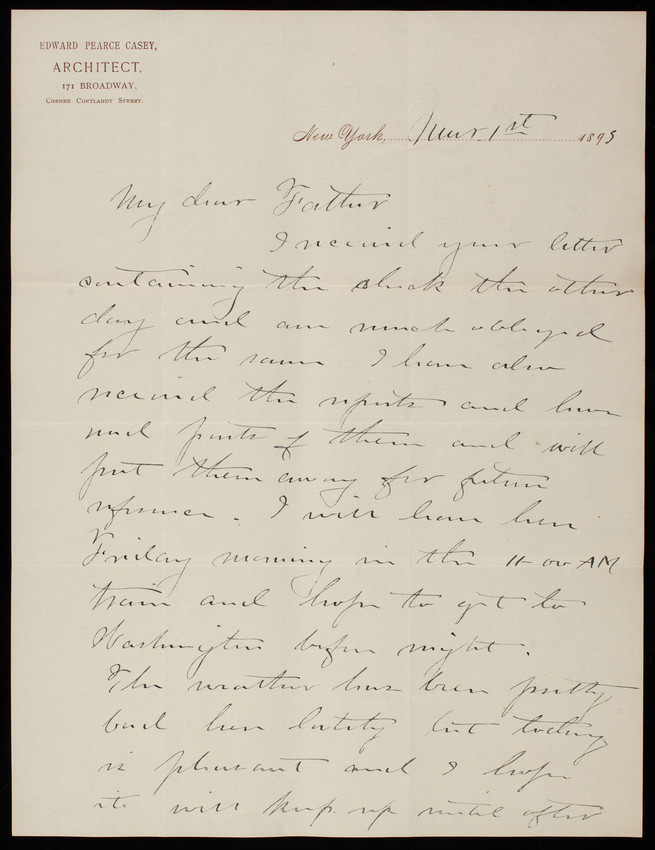 EDWARD PEARCE CASEY,
ARCHITECT,
171 BROADWAY,
CORNER CORTLANDT STREET.
New York, Mar 1st 1893
My dear Father
I received your letter
containing the check the other
day and am much obliged
for the same I have also
received the reports and have
read parts of them and will
put them away for future
reference. I will leave here
Friday morning in the 11-00 AM
train and hope to get to
Washington before night.
The weather has been pretty
bad here lately but today
is pleasant and I hope
it will keep up until after